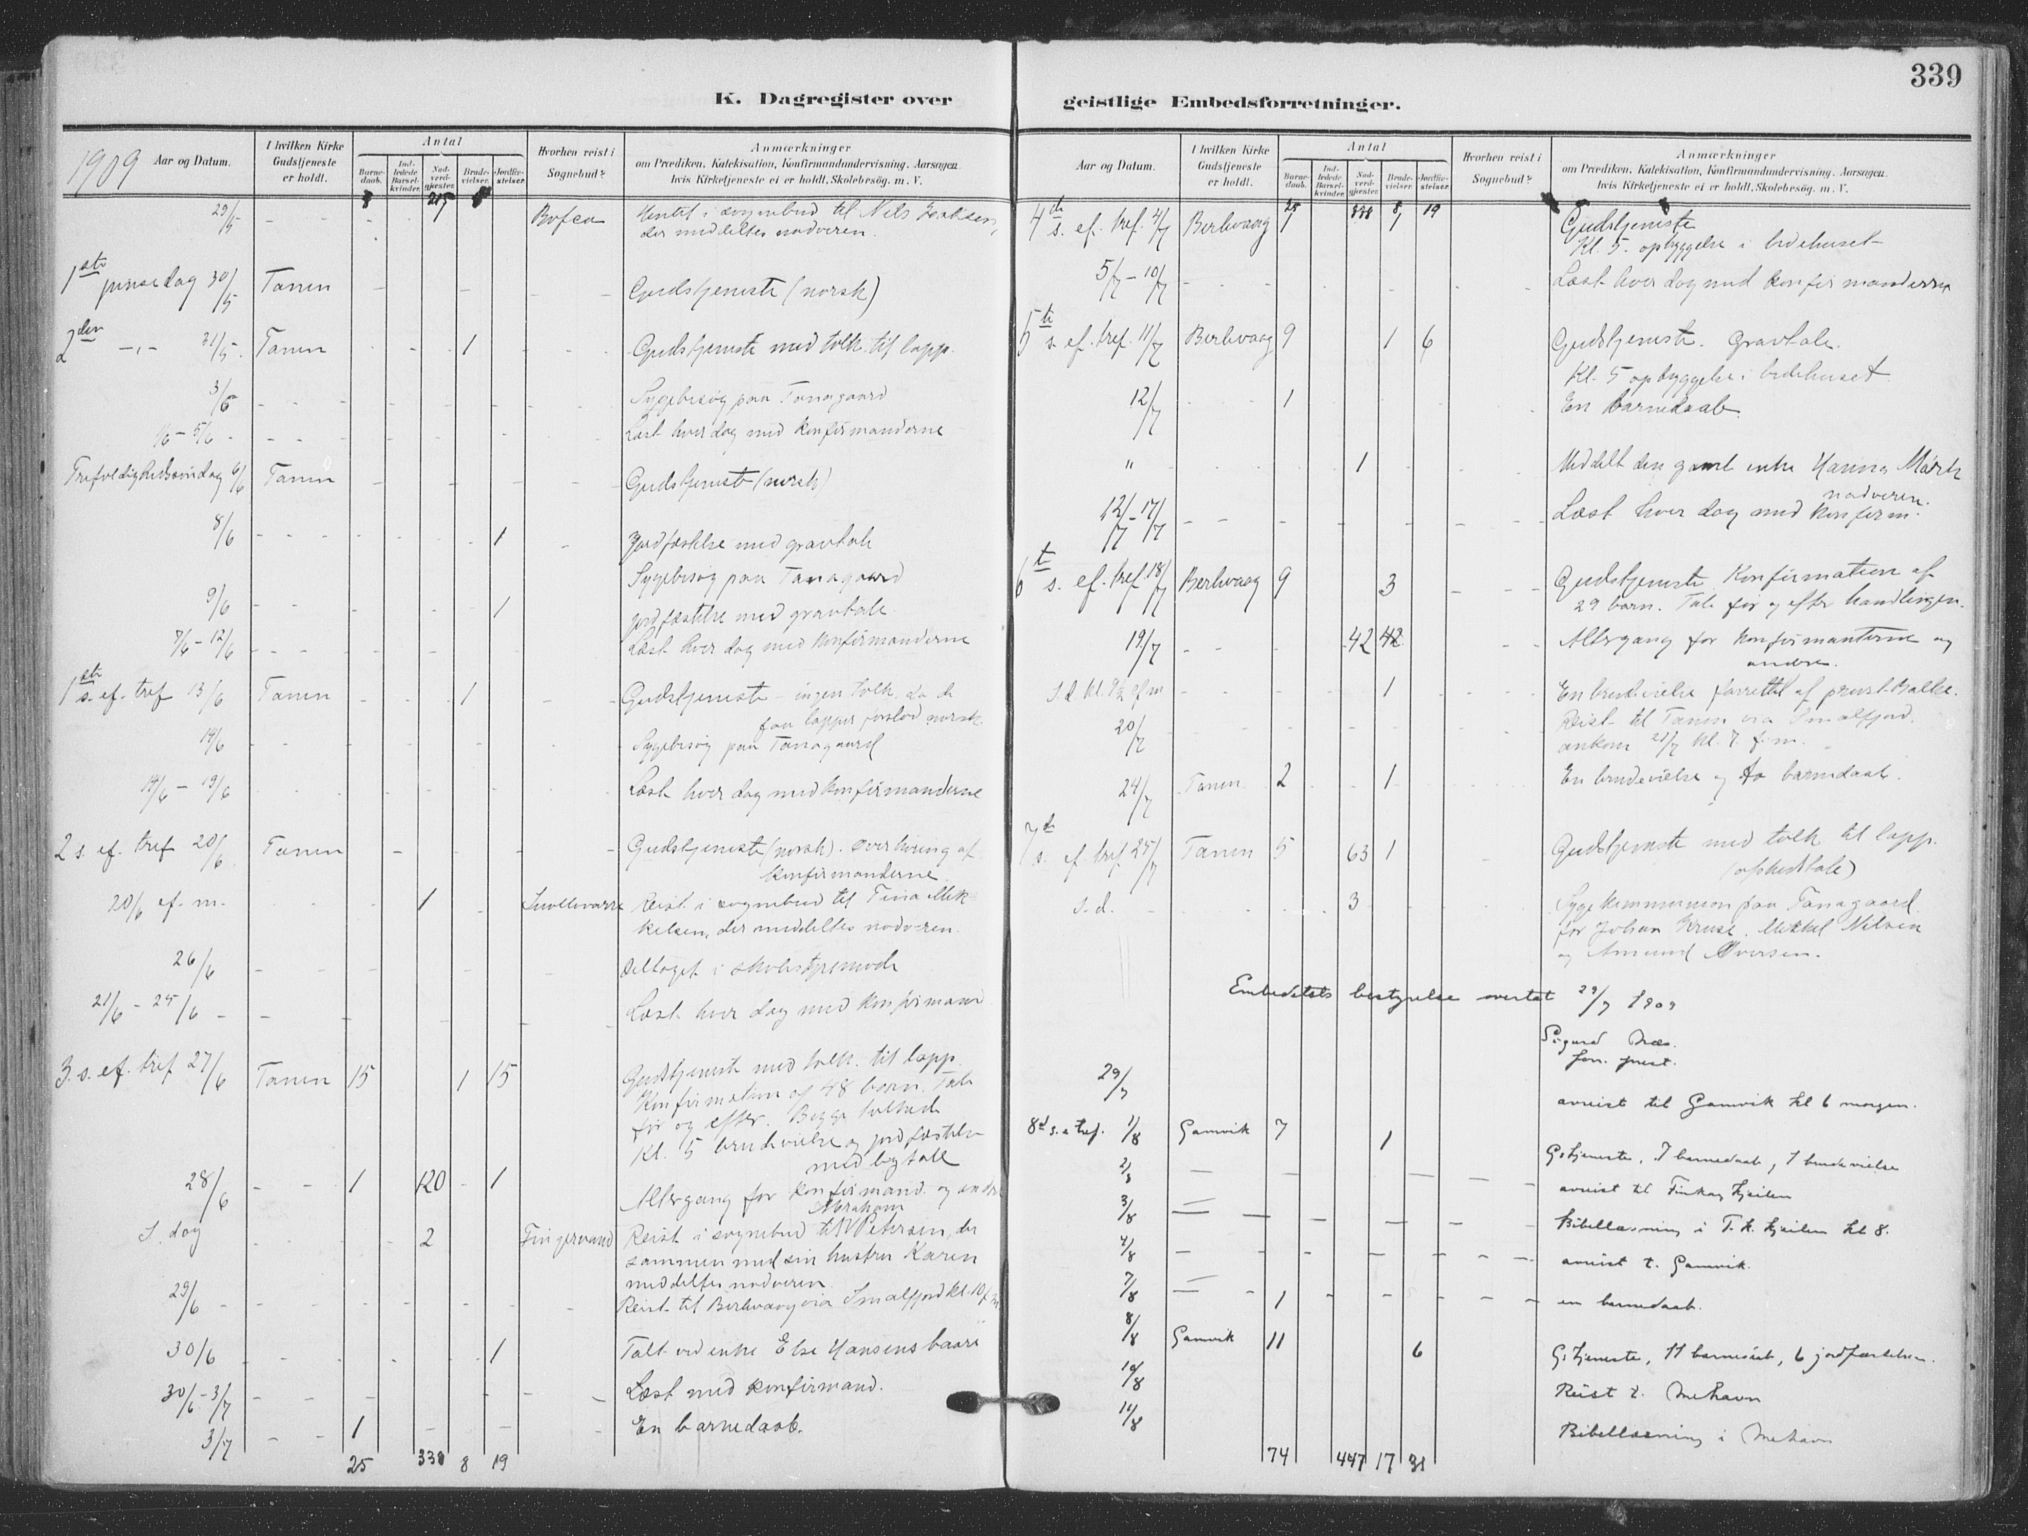 339
K. Dagregister over
geistlige Embedsforretninger.
1909 Aar og Datum.
I hvilken Kirke Gudstjeneste er holdt.
Antal
Barne-daab.
Ind-ledede Barsel-kvinder.
Nad-verd-gjester.
Brude-vielser.
Jordfæ-stelser.
Hvorhen reist i Sognebud?
Anmærkninger
om Prædiken, Katekisation, Konfirmandundervisning, Aarsagen
hvis Kirketjeneste ei er holdt, Skolebesøg. m. V.
29/5 Hentet i sognebud til Nils
der meddeltes nadveren.
1ste pinsedag 30/5 Tanen - - - Gudstjeneste (norsk)
2den -,,- 31/5. Tanen 1 Gudstjeneste med tolk til lapp.
3/6 - - - Sygebesøg paa Tanagaard
1/6 - 5/6 - - - Læst hver dag med konfirmanderne
Trefoldighedssøndag 6/6 Tanen - - - Gudstjeneste (norsk)
8/6 - - - 1 Jordfæstelse med gravtale
Sygebesøg paa Tanagaard
9/6 - - - 1 jordfæstelse med gravtale.
7/6 - 12/6 - - - Læst hver dag med konfirmanderne
1ste s. ef. tref 13/6 Tanen 1 Gudstjeneste - ingen tolk, da de
faa lapper forstod norsk.
14/6 - - - Sygebesøg paa Tanagaard
14/6 - 19/6 Læst hver dag med konfirmanderne
2 s. ef. tref 20/6 Tanen - - Gudstjeneste (norsk). Overhøring af
konfirmanderne.
20/6 ef. m. 1 Reist i sognebud til Tina Mik-
kelsen, der meddeltes nadveren.
26/6 - - - Deltaget i skolestyremøde
21/6 - 25/6 - - Læst hver dag med konfirmand
3. s. ef. tref 27/6 Tanen 15 1 15 Gudstjeneste med tolk til lapp.
Konfirmation af 48 barn. Tale
før og efter. Begge tolkede
Kl. 5 brudevielse og jordfæstelse
med ligtale
28/6 - - 1 120 - 1 Altergang for konfirmand. og andre
Abraham
S. dag 2 Fingervand Reist i sognebud til Petersen, der
sammen med sin hustru Karen
meddeltes nadveren.
29/6 - - - Reist til Berlevaag via Smalfjord kl. 10 f. m.
30/6 - - - 1 Talt ved enke Else Hansens baare
30/6 - 3/7 - - - Læst med konfirmand.
3/7 - - 1 - - En barnedaab.
25 338 8 19
Aar og Datum.
I hvilken Kirke Gudstjeneste er holdt.
Antal
Barne-daab.
Ind-ledede Barsel-kvinder.
Nad-verd-gjester.
Brude-vielser.
Jordfæ-stelser.
Hvorhen reist i Sognebud?
Anmærkninger
om Prædiken, Katekisation, Konfirmandundervisning, Aarsagen
hvis Kirketjeneste ei er holdt, Skolebesøg. m. V.
25 338 8 19
4de s. ef. tref. 4/7 Berlevaag 7 1 Gudstjeneste
Kl. 5. opbyggelse i bedehuset
5/7 - 10/7 - - - Læst hver dag med konfirmanderne
5te s. ef. tref. 11/7 Berlevaag 9 1 6 Gudstjeneste. Gravtale.
Kl. 5 opbyggelse i bedehuset
12/7 1 En barnedaab.
" 1 Meddelt den gamle enke Hanna Mørk
nadveren.
12/7 - 17/7 - - - Læst hver dag med konfirm.
6te s. ef. tref. 18/7 Berlevaag 9 3 - - - Gudstjeneste Konfirmation af
29 barn. Tale før og efter handlingen.
19/7 - - 42 42 - - Altergang for konfirmanterne og
andre.
1 En brudevielse forrettet af provst Balke.
20/7 Reist til Tanen via Smalfjord.
ankom 21/7 kl. 7 f. m.
24/7 Tanen 2 1 En brudevielse og to barnedaab.
7de s. ef. tref 25/7 Tanen 5 63 1 Gudstjeneste med tolk til lapp.
(afskedstale)
s. d. - - 3 Sygekommunion paa Tanagaard
for Johan Kruse, Mikkel Nilsen
og Amund Iversen.
Embedets bestyrelse overtat 29/7 1909
Sigurd Næs.
fon. prest.
29/7 avreist til Gamvik kl 6 morgen.
8d s. e tref. 1/8 Gamvik 7 1 G:tjeneste, 7 barnedaab, 1 brudevielse
2/8 - - - avreist til Finkongkjeilen
3/8 - - - Bibellæsning i F. k. kjeilen kl 8.
4/8 - - - avreist t. Gamvik.
7/8 - - 1 - - - en barnedaab.
8/8 Gamvik 11 6 G:tjeneste, 11 barnedaab, 6 jordfæstelser.
10/8 Reist t. Mehavn
11/8 Bibellæsning i Mehavn
74 447 17 31